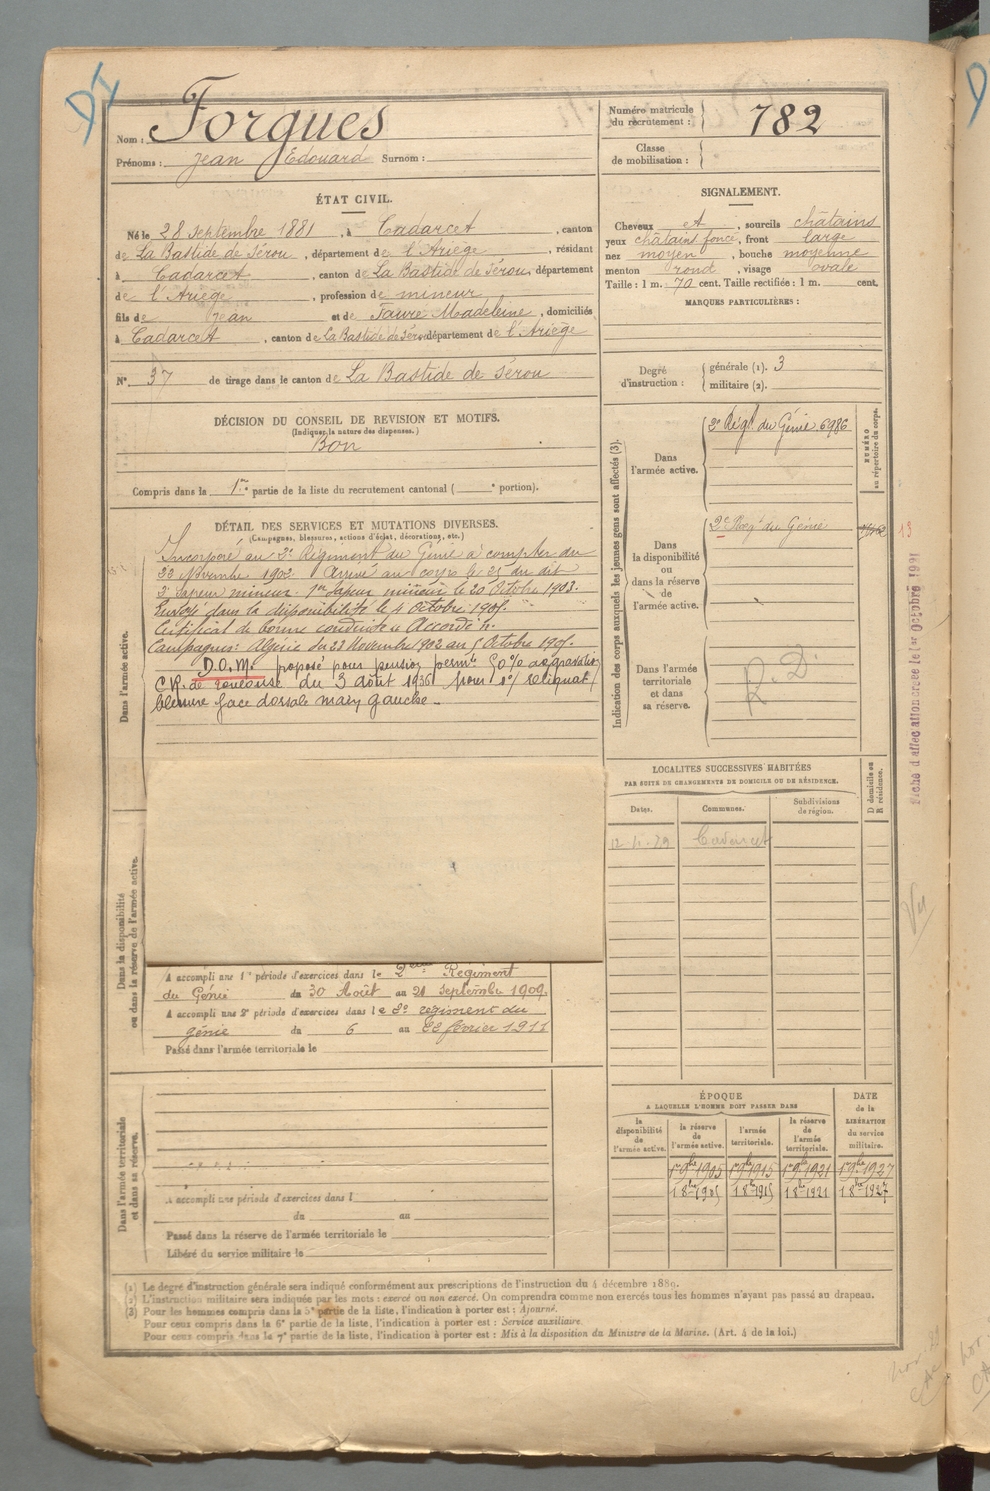 Nom : Forgues
Prénoms : Jean Edouard Surnom :
Numéro matricule du recrutement : 782
Classe de mobilisation :
ÉTAT CIVIL.
Né le 28 septembre 1881, à Cadarcet, canton
de La Bastide de Sérou, département de l'Ariège, résidant
à Cadarcet, canton de La Bastide de Sérou, département
de l'Ariège, profession de mineur
fils de Jean et de Faure Madeleine, domiciliés
à Cadarcet, canton de La Bastide de Sérou département de l'Ariège
N° 37 de tirage dans le canton de La Bastide de Sérou
SIGNALEMENT.
Cheveux et, sourcils châtains
yeux châtains foncé, front large
nez moyen, bouche moyenne
menton rond, visage ovale
Taille : 1 m. 70 cent. Taille rectifiée : 1 m. cent.
MARQUES PARTICULIÈRES :
Degré d'instruction : générale (1). 3
militaire (2).
DÉCISION DU CONSEIL DE REVISION ET MOTIFS.
(Indiquer la nature des dispenses.)
Bon
Compris dans la 1re partie de la liste du recrutement cantonal ( e portion).
DÉTAIL DES SERVICES ET MUTATIONS DIVERSES.
(Campagnes, blessures, actions d'éclat, décorations, etc.)
Dans l'armée active.
Incorporé au 2e Régiment du Génie à compter du
23 Novembre 1902. Arrivé au corps le 25 du dit
2e Sapeur mineur. 1er Sapeur mineur le 20 Octobre 1903.
Envoyé dans la disponibilité le 4 Octobre 1905.
Certificat de bonne conduite « Accordé ».
Campagnes : Algérie du 23 Novembre 1902 au 5 Octobre 1905.
D.O.M. proposé pour pension perm.
C.R. de Toulouse du 3 août 1936 pour 1°/ reliquat
blessure face dorsale main gauche.
Dans la disponibilité ou dans la réserve de l'armée active.
A accompli une 1re période d'exercices dans le 2ème Régiment
du Génie du 30 Août au 21 septembre 1909.
A accompli une 2e période d'exercices dans le 2e régiment du
génie du 6 au 22 février 1911
Passé dans l'armée territoriale le
Dans l'armée territoriale et dans sa réserve.
A accompli une période d'exercices dans l
du au
Passé dans la réserve de l'armée territoriale le
Libéré du service militaire le
Indication des corps auxquels les jeunes gens sont affectés (3).
NUMÉRO au répertoire du corps.
Dans l'armée active. 2e Régt du Génie 6986
Dans la disponibilité ou dans la réserve de l'armée active. 2e Regt du Génie 13
Dans l'armée territoriale et dans sa réserve. R.D.
Fiche d'affectation créée le 1er Octobre 1921
LOCALITÉS SUCCESSIVES HABITÉES
PAR SUITE DE CHANGEMENTS DE DOMICILE OU DE RÉSIDENCE.
Dates. Communes. Subdivisions de région. D domicile ou R résidence.
Cadarcet
Vu
ÉPOQUE
A LAQUELLE L'HOMME DOIT PASSER DANS
la disponibilité de l'armée active. la réserve de l'armée active. l'armée territoriale. la réserve de l'armée territoriale.
DATE de la LIBÉRATION du service militaire.
1er 9bre 1905 1er 9bre 1915 1er 9bre 1921 1er 9bre 1927
1 8bre 1905 1 8bre 1915 1 8bre 1921 1 8bre 1927
(1) Le degré d'instruction générale sera indiqué conformément aux prescriptions de l'instruction du 4 décembre 1889.
(2) L'instruction militaire sera indiquée par les mots : exercé ou non exercé. On comprendra comme non exercés tous les hommes n'ayant pas passé au drapeau.
(3) Pour les hommes compris dans la 5e partie de la liste, l'indication à porter est : Ajourné.
Pour ceux compris dans la 6e partie de la liste, l'indication à porter est : Service auxiliaire.
Pour ceux compris dans la 7e partie de la liste, l'indication à porter est : Mis à la disposition du Ministre de la Marine. (Art. 4 de la loi.)